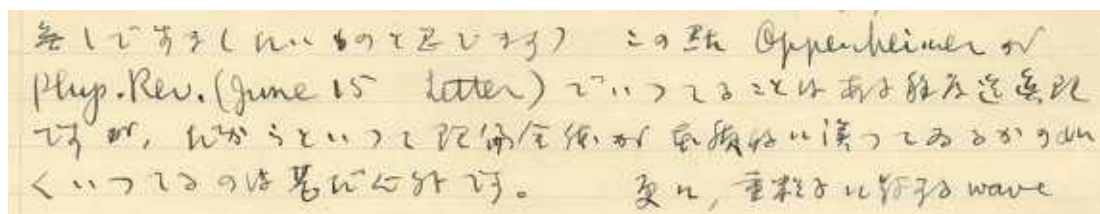 無しですましたいものと思ひます) この点 Oppenheimer が
Phys. Rev. (June 15 Letter) でいつてることはある程度迄真理
ですが, だからといつて理論全体が本質的に誤つてゐるかの如
くいつてるのは甚だ心外です。 更に, 重粒子に対する wave